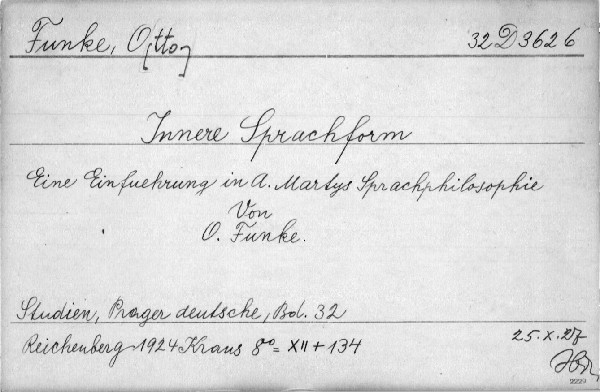 Funke, O[tto]
32 D 3626
Innere Sprachform
Eine Einfuehrung in A. Martys Sprachphilosophie
Von
O. Funke.
Studien, Prager deutsche, Bd. 32
Reichenberg 1924 Kraus 8° = XII + 134
25.X.27